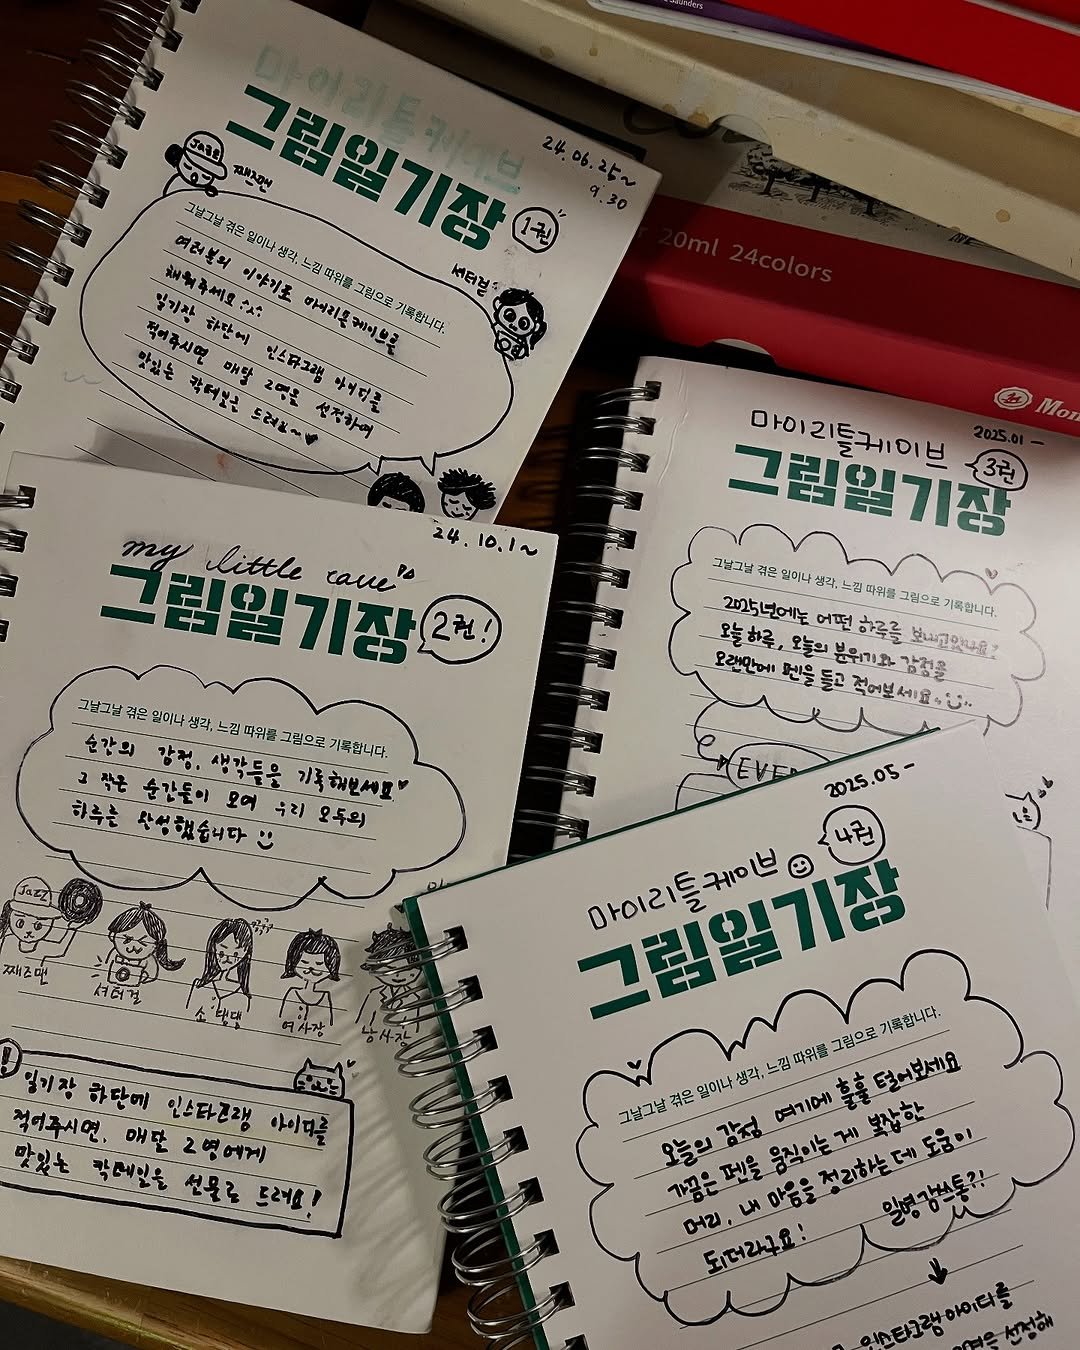 Saunders
20ml 24colors
마이리틀케이브
그림일기장
24.06.25~
9.30
1권
JAZZ
째즈맨
셔터걸
그날그날 겪은 일이나 생각, 느낌 따위를 그림으로 기록합니다.
여러분의 이야기로 마이리틀케이브를
채워주세요
일기장 하단에 인스타그램 아이디를
적어주시면 매달 2명을 선정하여
맛있는 칵테일을 드려요~♥
24.10.1~
my little cave's
그림일기장
2권!
그날그날 겪은 일이나 생각, 느낌 따위를 그림으로 기록합니다.
순간의 감정, 생각들을 기록해보세요♥
그 작은 순간들이 모여 우리 모두의
하루를 완성했습니다
Jazz
째즈맨
셔터걸
여사장
남사장
!
일기장 하단에 인스타그램 아이디를
적어주시면, 매달 2명에게
맛있는 칵테일을 선물로 드려요!
마이리틀케이브
2025.01-
그림일기장
3권
그날그날 겪은 일이나 생각, 느낌 따위를 그림으로 기록합니다.
2025년에는 어떤 하루를 보내고있나요?
오늘 하루, 오늘의 분위기와 감정을
오랜만에 펜을 들고 적어보세요
2025.05-
마이리틀케이브
4권
그림일기장
그날그날 겪은 일이나 생각, 느낌 따위를 그림으로 기록합니다.
오늘의 감정 여기에 훌훌 털어보세요
가끔은 펜을 움직이는 게 복잡한
머리, 내 마음을 정리하는데 도움이
되더라구요!
일명 감쓰통?!
인스타그램 아이디를
선정해